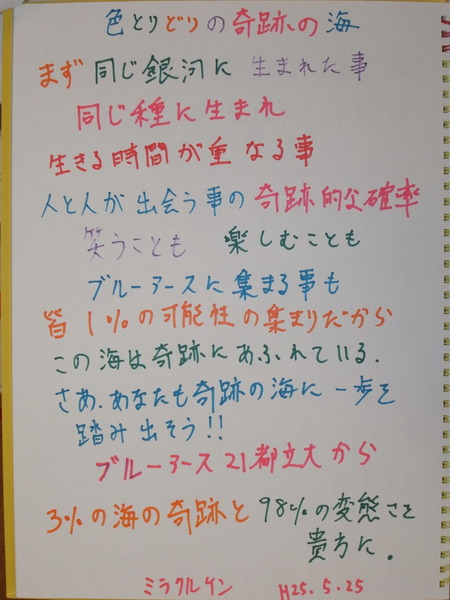 色とりどりの奇跡の海
まず同じ銀河に生まれた事
同じ種に生まれ
生きる時間が重なる事
人と人が出会う事の奇跡的な確率
笑うことも 楽しむことも
ブルーアースに集まる事も
皆1%の可能性の集まりだから
この海は奇跡にあふれている.
さあ、あなたも奇跡の海に一歩を
踏み出そう!!
ブルーアース21都立大から
3%の海の奇跡と98%の変態さを
貴方に。
ミラクルケン H25.5.25